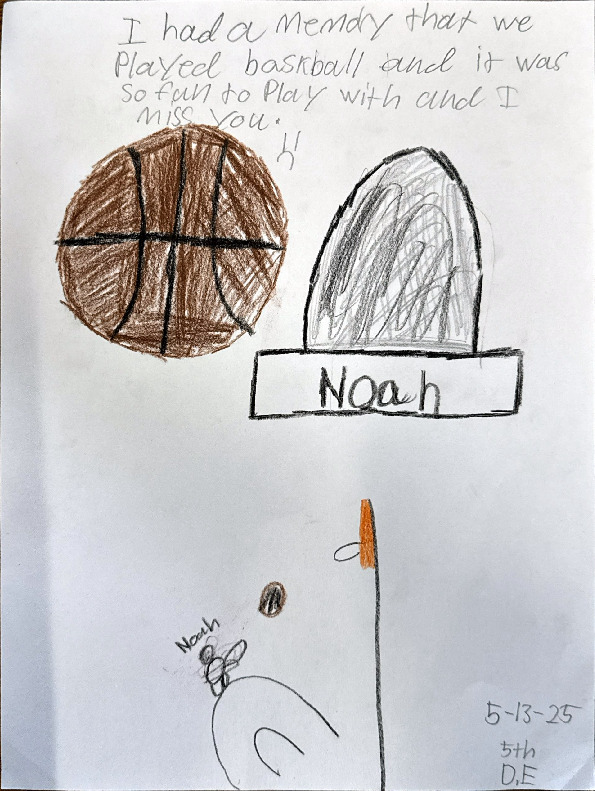 I had a Memory that we
Played baskball and it was
so fun to Play with and I
miss you.
Noah
Noah
5-13-25
5th
D.E